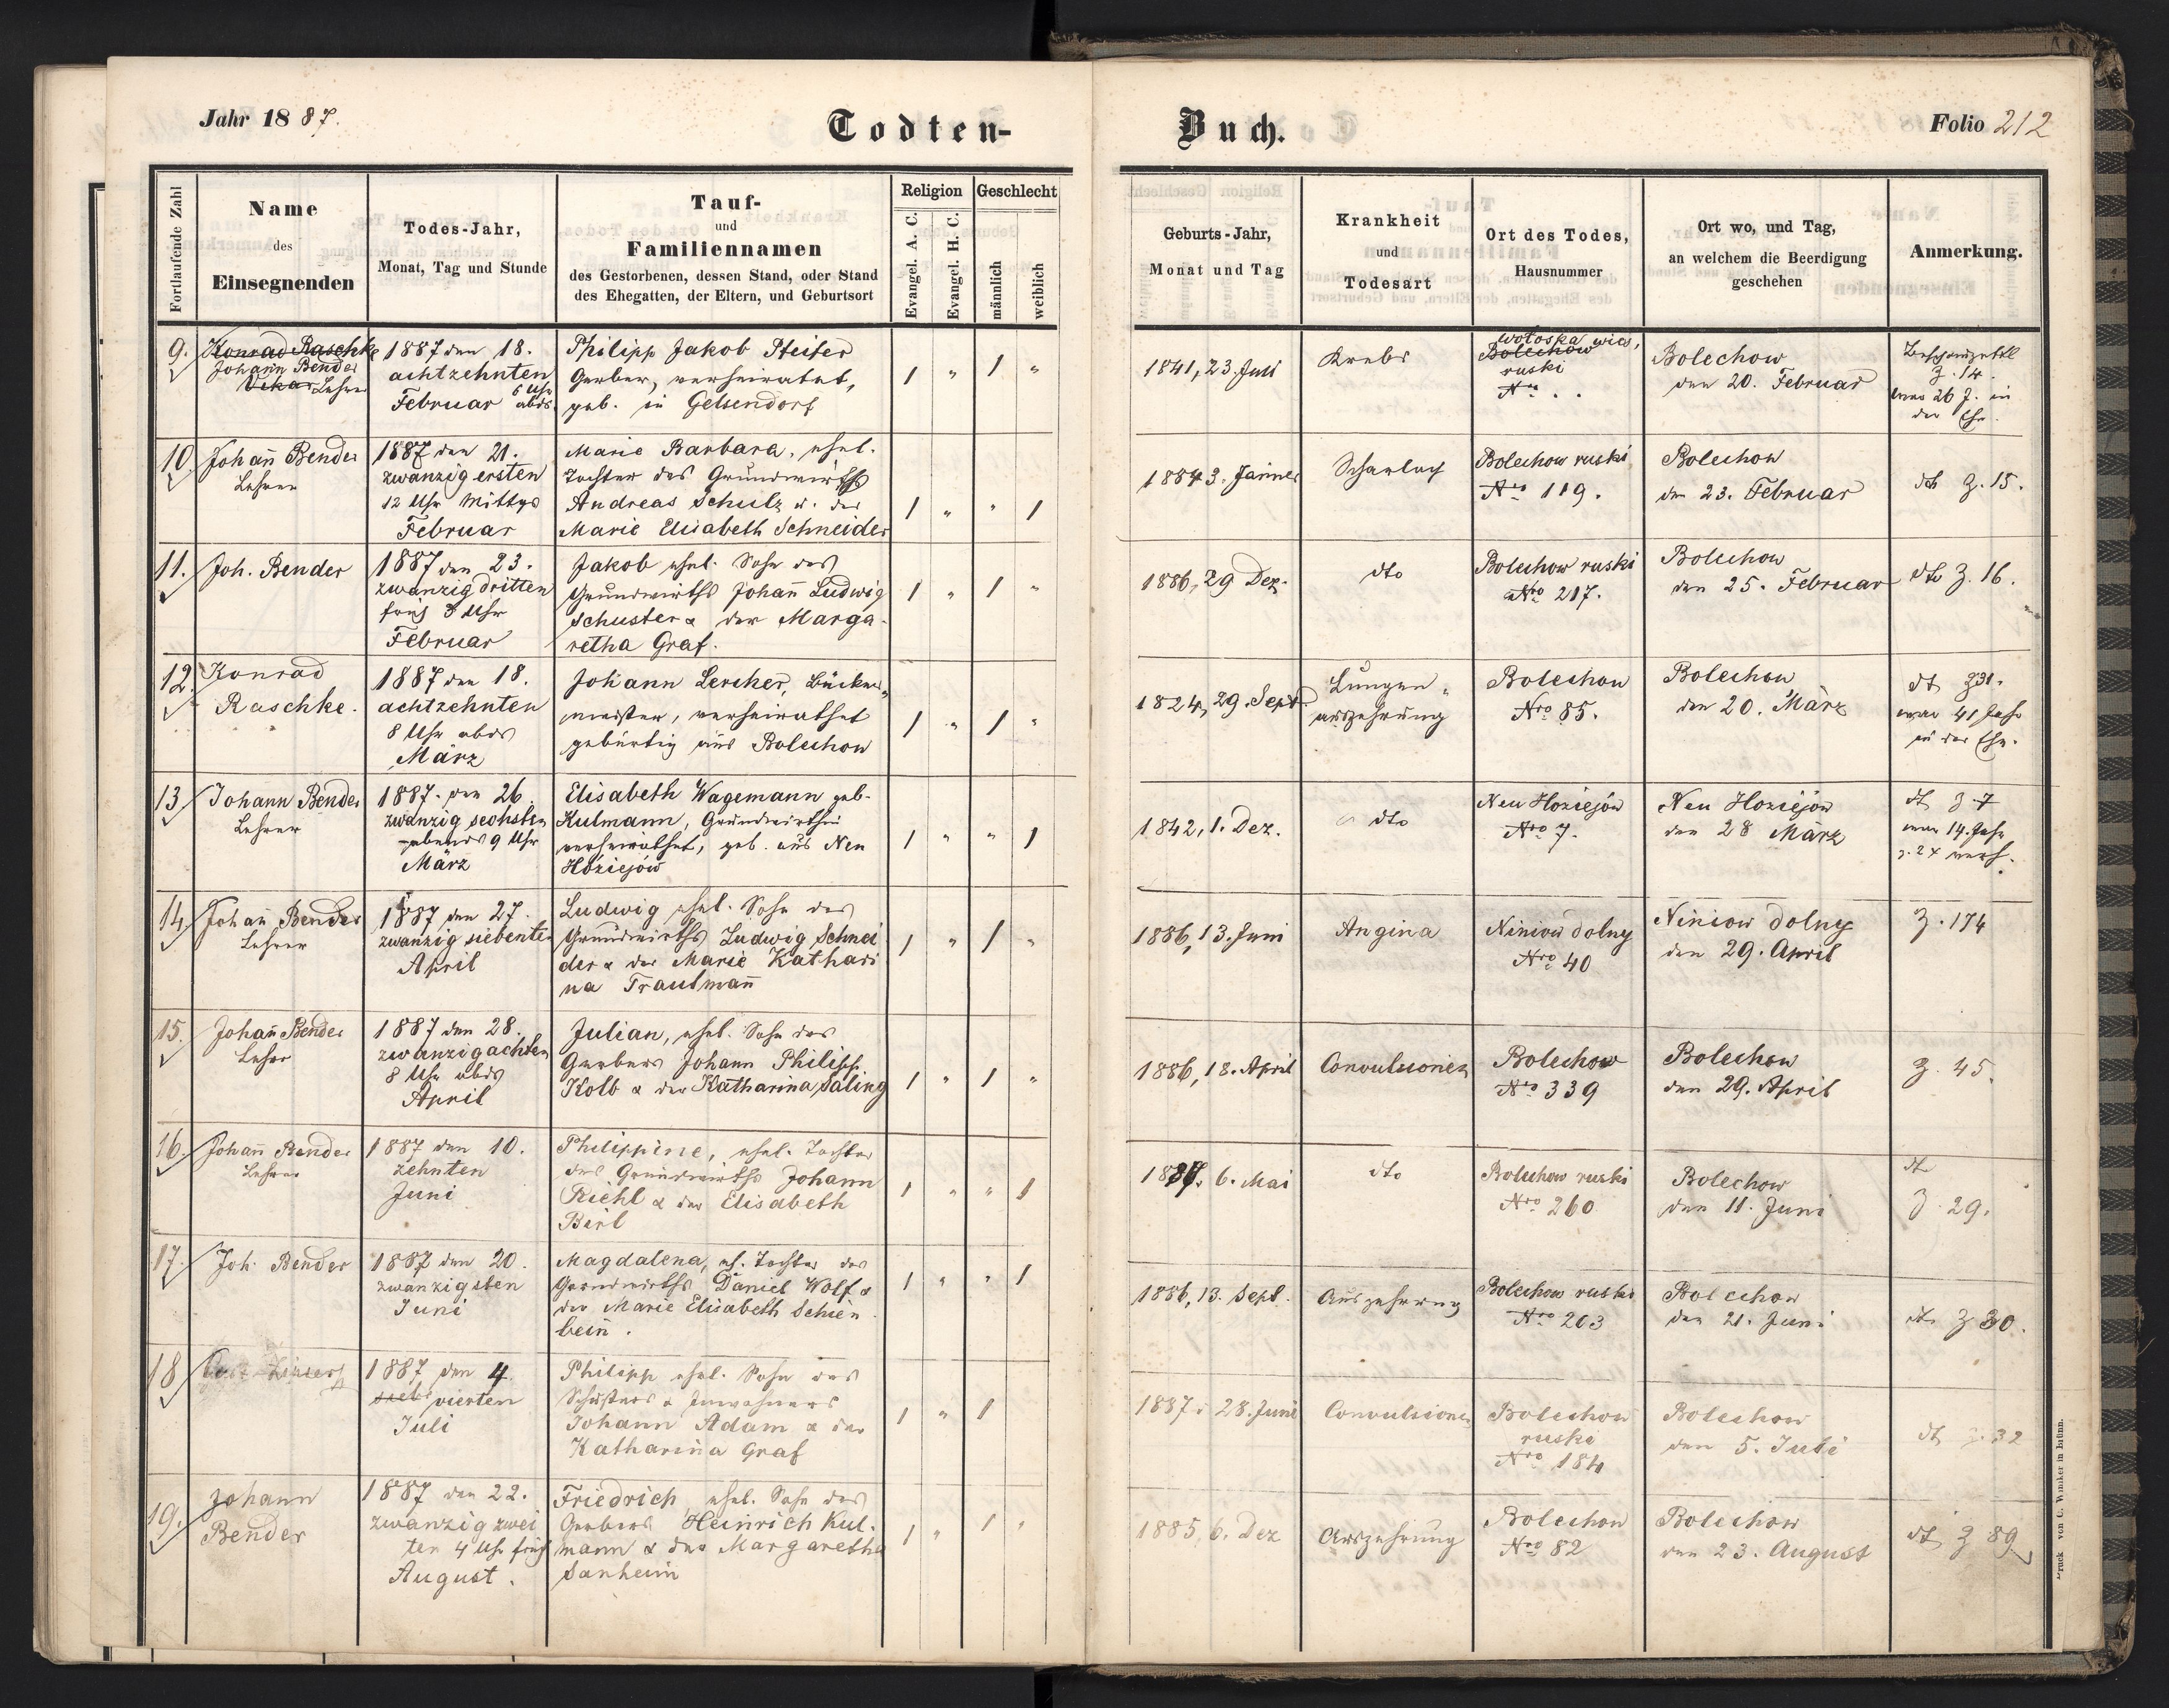 Jahr 1887.
Todten-
Buch.
Folio 212
Fortlaufende Zahl
Name
des
Einsegnenden
Todes-Jahr,
Monat, Tag und Stunde
Tauf-
und
Familiennamen
des Gestorbenen, dessen Stand, oder Stand
des Ehegatten, der Eltern, und Geburtsort
Religion
Evangel. A. C.
Evangel. H. C.
Geschlecht
männlich
weiblich
Geburts-Jahr,
Monat und Tag
Krankheit
und
Todesart
Ort des Todes,
Hausnummer
Ort wo, und Tag,
an welchem die Beerdigung
geschehen
Anmerkung.
9.
Konrad Raschke
Johann Bender
Vikar Lehrer
1887 den 18.
achtzehnten
6 Uhr
Februar abds.
Philipp Jakob Pfeifer
Gerber, verheiratet,
geb. in Gelsendorf
1 " 1 "
1841, 23. Juli
Krebs
wołoska wieś,
Bolechow
ruski
Nro . .
Bolechow
den 20. Februar
Z. 14.
war 26 J. in
der Ehe.
10.
Johañ Bender
Lehrer
1887 den 21.
zwanzig ersten
12 Uhr Mittgs
Februar
Marie Barbara, ehel.
Tochter des Grundwirths
Andreas Schulz u. der
Marie Elisabeth Schneider
1 " " 1
1884 3. Jänner
Scharlach
Bolechow ruski
Nro 119.
Bolechow
den 23. Februar
dto Z. 15.
11.
Joh. Bender
1887 den 23.
zwanzig dritten
früh 8 Uhr
Februar
Jakob ehel. Sohn des
Grundwirths Johañ Ludwig
Schuster & der Marga-
retha Graf.
1 " 1 "
1886, 29 Dez.
dto
Bolechow ruski
Nro 217.
Bolechow
den 25. Februar
dto Z. 16.
12.
Konrad
Raschke.
1887 den 18.
achtzehnten
8 Uhr abds
März
Johann Lercher, Bäcker-
meister, verheirathet
gebürtig aus Bolechow
1 " 1 "
1824, 29. Sept.
Lungen-
auszehrung
Bolechow
Nro 85.
Bolechow
den 20. März
dto Z 31.
war 41 Jahr
in der Ehe.
13
Johann Bender
Lehrer
1887. den 26.
zwanzig sechsten
abends 9 Uhr
März
Elisabeth Wagemann geb.
Kulmann, Grundwirthin
verheirathet, geb. aus Neu
Hoziejów
1 " " 1
1842, 1. Dez.
dto
Neu Hoziejów
Nro 7.
Neu Hoziejów
den 28 März
dto Z 7
war 14. Jahr
z. 2 x verh.
14.
Johañ Bender
Lehrer
1887 den 27.
zwanzig siebenten
April
Ludwig ehel. Sohn des
Grundwirths Ludwig Schnei
der & der Marie Kathari
na Trautmañ
1 " 1 "
1886, 13. Juni
Angina
Niniow dolny
Nro 40
Niniow dolny
den 29. April
Z. 174
15.
Johañ Bender
Lehrer
1887 den 28.
zwanzigachten
8 Uhr abds
April
Julian, ehel. Sohn des
Gerbers Johann Philipp
Kolb & der Katharina Saling
1 " 1 "
1886, 18. April
Convulsionen
Bolechow
Nro 339
Bolechow
den 29. April
Z. 45.
16.
Johañ Bender
Lehrer
1887 den 10.
zehnten
Juni
Philippine, ehel. Tochter
des Grundwirths Johann
Riehl & der Elisabeth
Birl
1 " " 1
1887. 6. Mai
dto
Bolechow ruski
Nro 260
Bolechow
den 11. Juni
dto
Z. 29.
17.
Joh. Bender
1887 den 20.
zwanzigsten
Juni
Magdalena, eh. Tochter des
Grundwirths Daniel Wolf &
der Marie Elisabeth Schien
beiñ.
1 " " 1
1886, 13. Sept.
Auszehrung
Bolechow ruski
Nro 203
Bolechow
den 21. Juni
dto Z 30.
18
1887 den 4.
sieb vierten
Juli
Philipp ehel. Sohn des
Schusters & Inwohners
Johann Adam & der
Katharina Graf
1 " 1
1887. 28. Juni
Convulsionen
Bolechow
ruski
Nro 184
Bolechow
den 5. Juli
dto Z. 32
19.
Johann
Bender
1887 den 22.
zwanzig zwei
ten 4 Uhr früh
August.
Friedrich, ehel. Sohn des
Gerbers Heinrich Kul-
mann & der Margaretha
Sanheim
1 " 1 "
1885, 6. Dez
Auszehrung
Bolechow
Nro 82
Bolechow
den 23. August
dto Z 89
Druck von C. Winiker in Brünn.